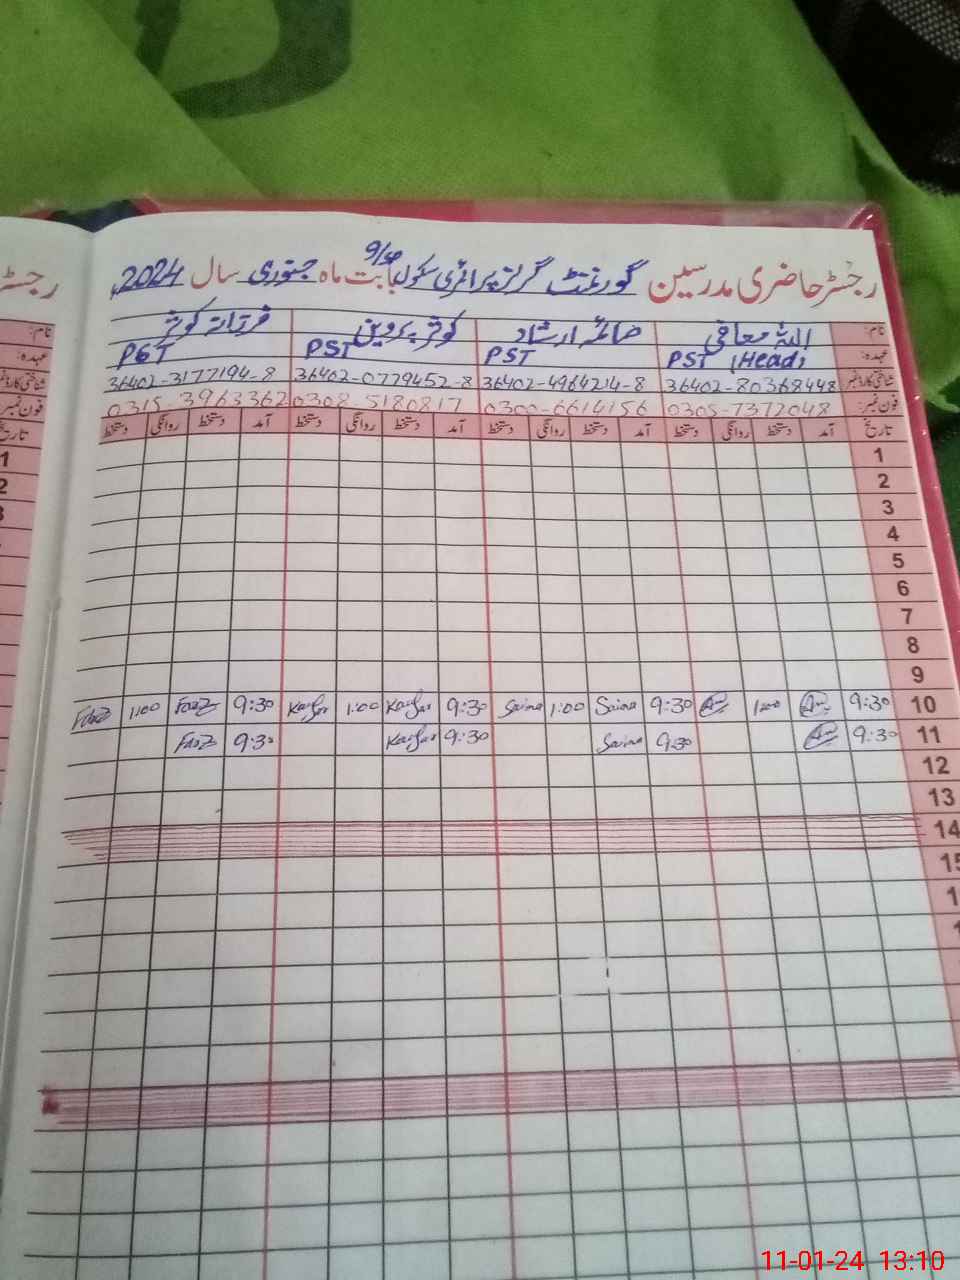 رجسٹر حاضری مدرسین گورنمنٹ گرلز پرائمری سکول 9/ بابت ماہ جنوری سال 2024ء
نام: صائمہ ارشاد کوثر پروین فرزانہ کوثر
عہدہ: PST (Head) PST PST PGT
شناختی کارڈ نمبر 36402-80368448 36402-4964214-8 36402-0779452-8 36402-3177194-8
فون نمبر: 0305-7372048 0300-6614156 0308-5180817 0315-3963362
تاریخ آمد دستخط روانگی دستخط آمد دستخط روانگی دستخط آمد دستخط روانگی دستخط آمد دستخط روانگی دستخط
1
2
3
4
5
6
7
8
9
10 9:30 1:00 9:30 Saima 1:00 Saima 9:30 Kausar 1:00 Kausar 9:30 FarZ 1:00 FarZ
11 9:30 9:30 Saima 9:30 Kausar 9:30 FarZ
12
13
14
15
11-01-24 13:10